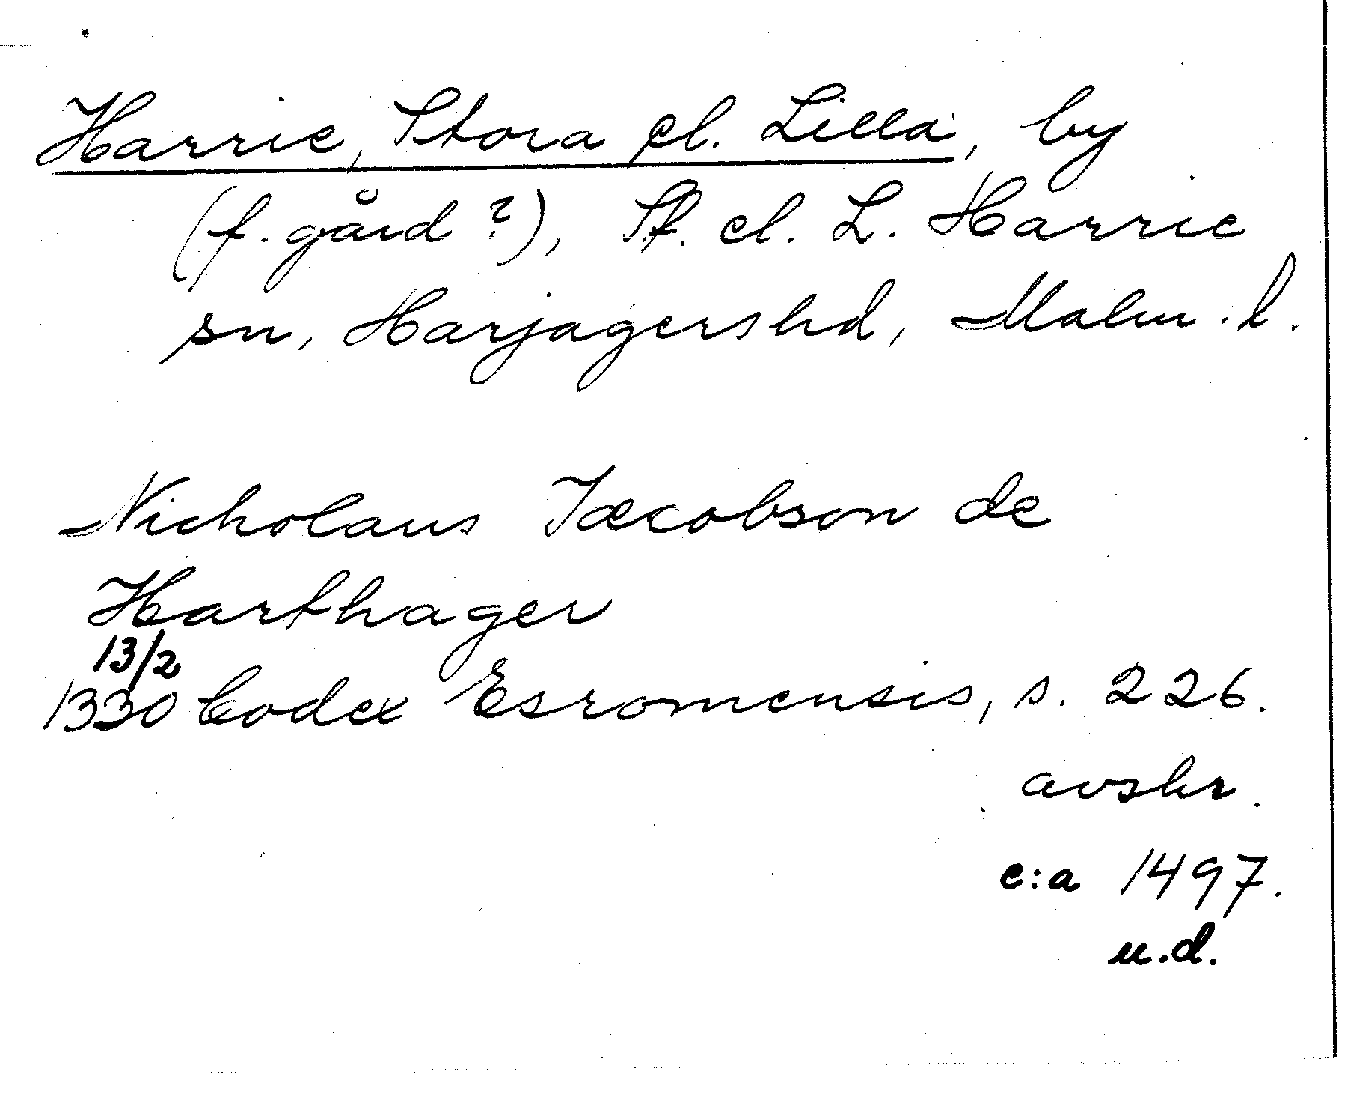 Harrie, Stora el. Lilla, by
(f. gård?), St. el. L. Harrie
sn, Harjagershd, Malm. l.
Nicholaus Jæcobson de
Harthager
13/2
1330 Codex Esromensis, s. 226.
avskr.
c:a 1497.
u.d.